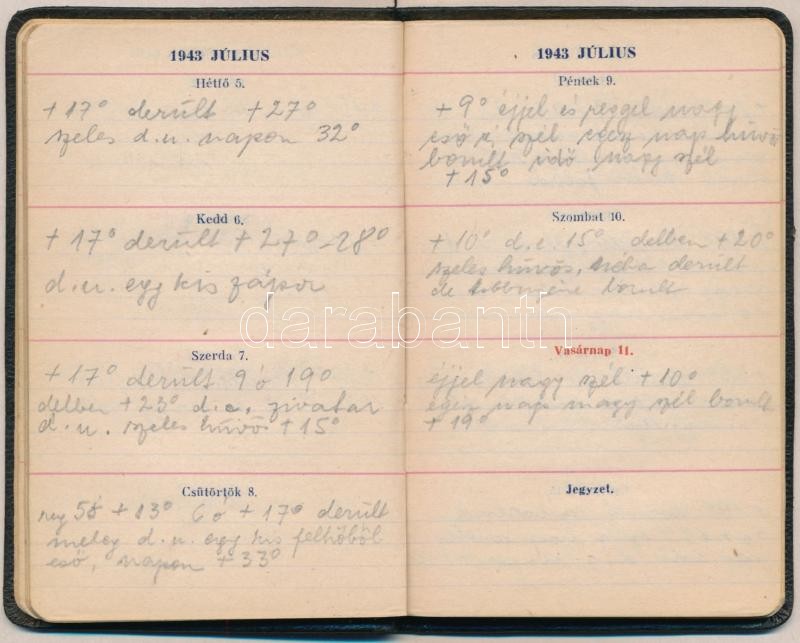 1943 JÚLIUS
Hétfő 5.
+17° derült +27°
szeles d.u. napon 32°
Kedd 6.
+17° derült +27°-28°
d.u. egy kis zápor
Szerda 7.
+17° derült 9 ó 19°
délben +23° d.e. zivatar
d.u. szeles hűvös +15°
Csütörtök 8.
reg 5ó +13° 6 ó +17° derült
meleg d.u. egy kis felhőből
eső, napon +33°
1943 JÚLIUS
Péntek 9.
+9° éjjel és reggel nagy
eső és szél egész nap hűvös
borult idő nagy szél
+15°
Szombat 10.
+10° d.e. 15° délben +20°
szeles hűvös, néha derült
de többnyire borult
Vasárnap 11.
éjjel nagy szél +10°
egész nap nagy szél borult
+19°
Jegyzet.
darabanth